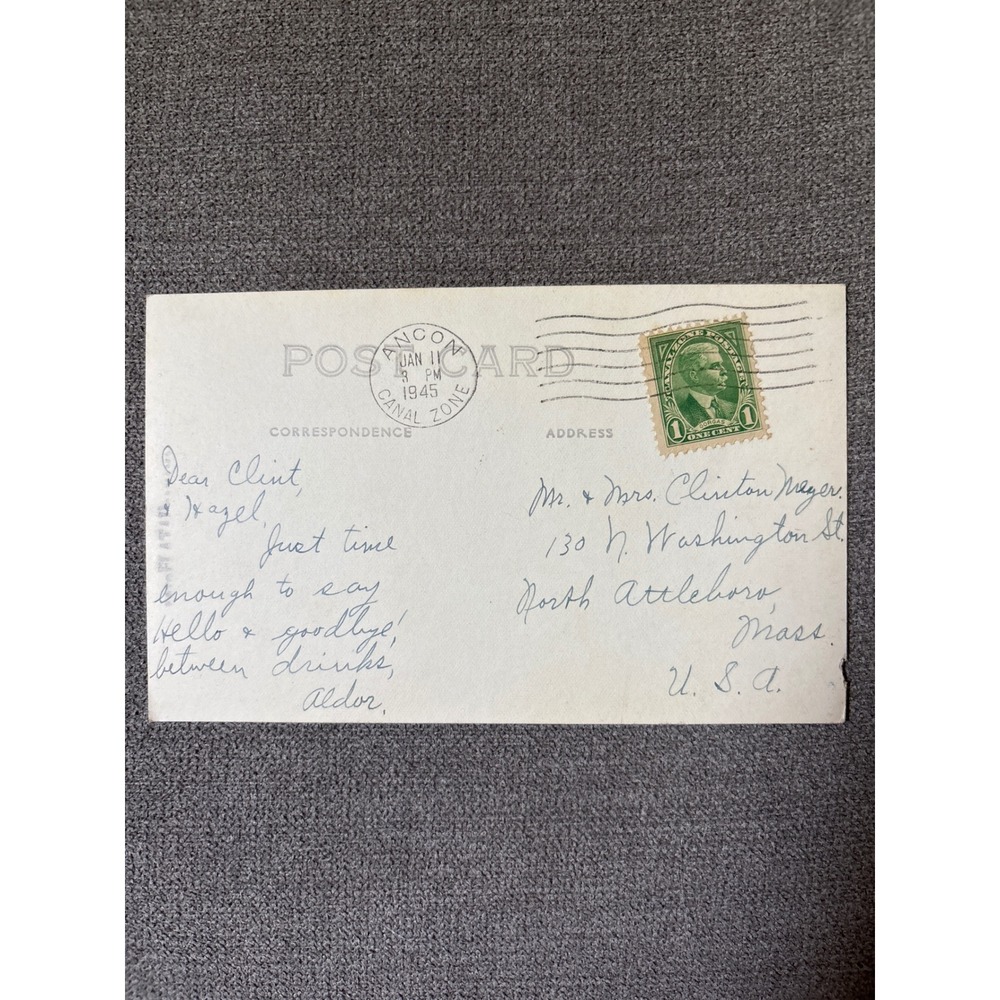 POST CARD
ANCON
JAN 11
3 PM
1945
CANAL ZONE
CANAL ZONE POSTAGE
GORGAS
1 ONE CENT 1
CORRESPONDENCE
ADDRESS
Dear Clint,
& Hazel,
Just time
enough to say
Hello & goodbye!
between drinks,
Aldor.
Mr. & Mrs. Clinton Meyer.
130 N. Washington St.
North Attleboro,
Mass.
U. S. A.